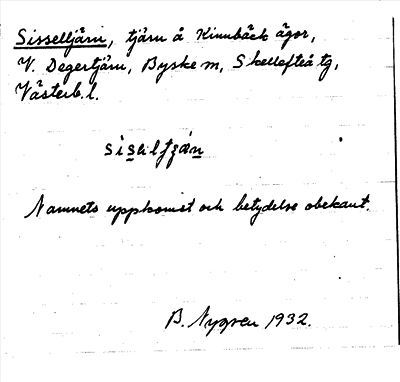 Sisseltjärn, tjärn å Kinnbäck ägor,
V. Degertjärn, Byske sn, Skellefteå tg,
Västerb. l.
siseltzän
Namnets uppkomst och betydelse obekant.
B. Nygren 1932.